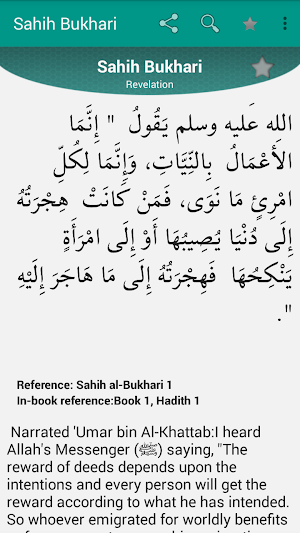 Sahih Bukhari
Sahih Bukhari
Revelation
الله عَليه وسلم يَقُولُ " إِنَّمَا
الأَعْمَالُ بِالنِّيَّاتِ، وَإِنَّمَا لِكُلِّ
امْرِئٍ مَا نَوَى، فَمَنْ كَانَتْ هِجْرَتُهُ
إِلَى دُنْيَا يُصِيبُهَا أَوْ إِلَى امْرَأَةٍ
يَنْكِحُهَا فَهِجْرَتُهُ إِلَى مَا هَاجَرَ إِلَيْهِ
".
Reference: Sahih al-Bukhari 1
In-book reference:Book 1, Hadith 1
Narrated 'Umar bin Al-Khattab:I heard
Allah's Messenger (ﷺ) saying, "The
reward of deeds depends upon the
intentions and every person will get the
reward according to what he has intended.
So whoever emigrated for worldly benefits